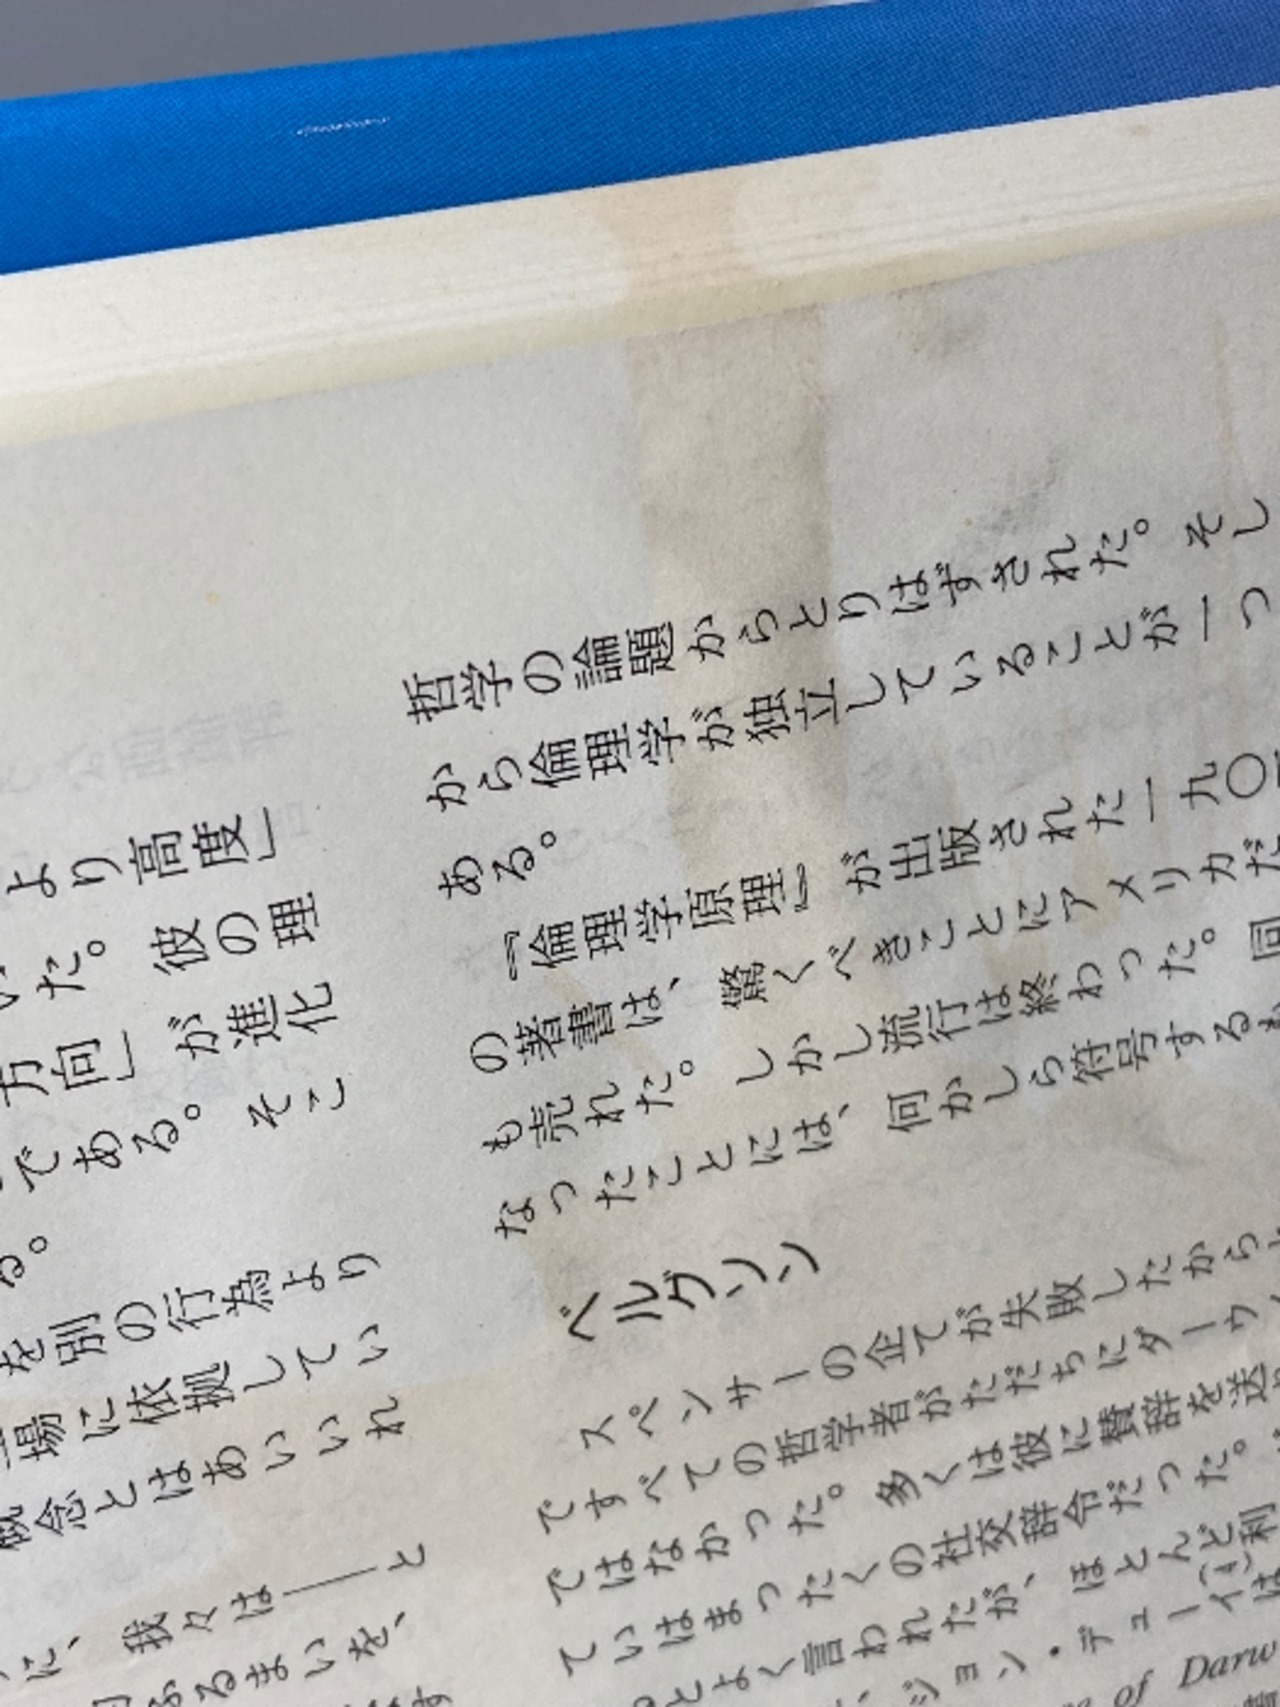 より高度」
た。彼の理
方向」が進化
である。そこ
る。
を別の行為より
場に依拠してい
概念とはあいいれ
に、我々は――と
るまいを、
哲学の論題からとりはずされた。そし
から倫理学が独立していることが一つ
ある。
『倫理学原理』が出版された一九〇
の著書は、驚くべきことにアメリカだ
も売れた。しかし流行は終わった。同
なったことには、何かしら符号する
ベルグソン
スペンサーの企てが失敗したから
ですべての哲学者がただちにダーウ
ではなかった。多くは彼に賛辞を送
ていはまったくの社交辞令だった。
とよく言われたが、ほとんど利
ジョン・デューイは
of Darw